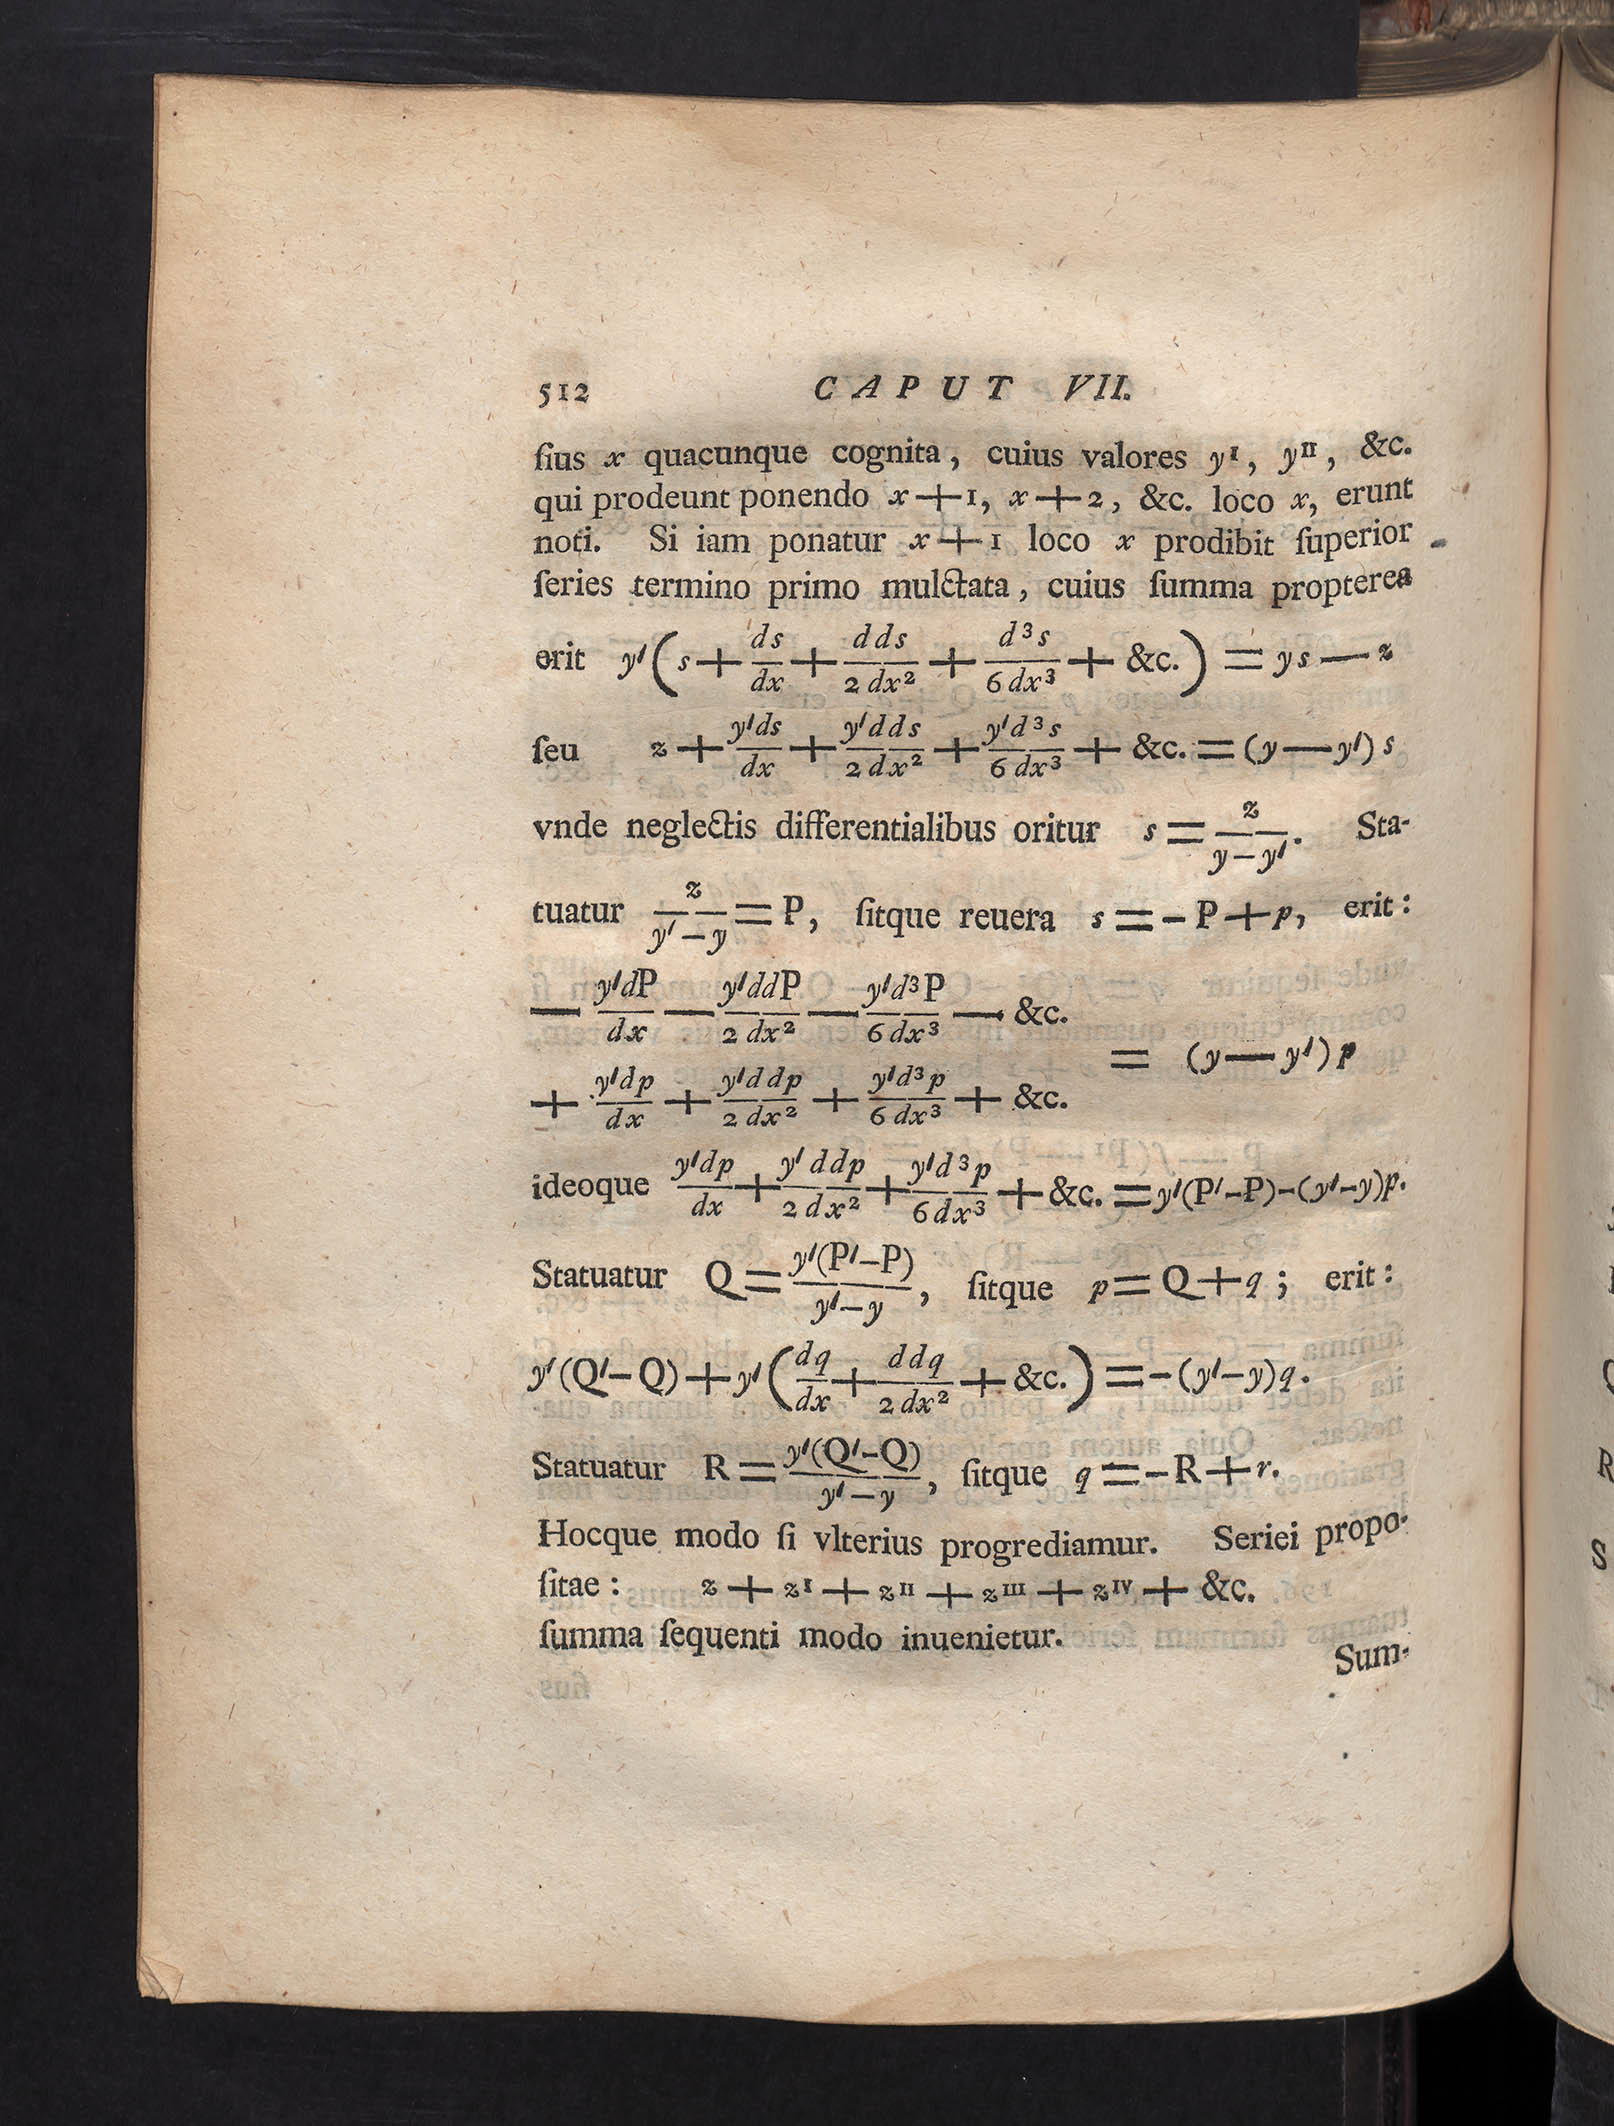 512 CAPUT VII.
ſius x quacunque cognita, cuius valores yᴵ, yᴵᴵ, &c.
qui prodeunt ponendo x+1, x+2, &c. loco x, erunt
noti. Si iam ponatur x+1 loco x prodibit ſuperior
ſeries termino primo mulctata, cuius ſumma propterea
erit y′(s + ds/dx + dds/2dx² + d³s/6dx³ + &c.) = ys — z
ſeu z + y′ds/dx + y′dds/2dx² + y′d³s/6dx³ + &c. = (y — y′)s
vnde neglectis differentialibus oritur s = z/(y–y′). Sta-
tuatur z/(y′–y) = P, ſitque reuera s = –P+p, erit:
— y′dP/dx — y′ddP/2dx² — y′d³P/6dx³ — &c.
= (y — y′)p
+ y′dp/dx + y′ddp/2dx² + y′d³p/6dx³ + &c.
ideoque y′dp/dx + y′ddp/2dx² + y′d³p/6dx³ + &c. = y′(P′–P)–(y′–y)p.
Statuatur Q = y′(P′–P)/(y′–y), ſitque p = Q+q; erit:
y′(Q′–Q) + y′(dq/dx + ddq/2dx² + &c.) = –(y′–y)q.
Statuatur R = y′(Q′–Q)/(y′–y), ſitque q = –R+r.
Hocque modo ſi vlterius progrediamur. Seriei propo-
ſitae: z + zᴵ + zᴵᴵ + zᴵᴵᴵ + zᴵⱽ + &c.
ſumma ſequenti modo inuenietur.
Sum-